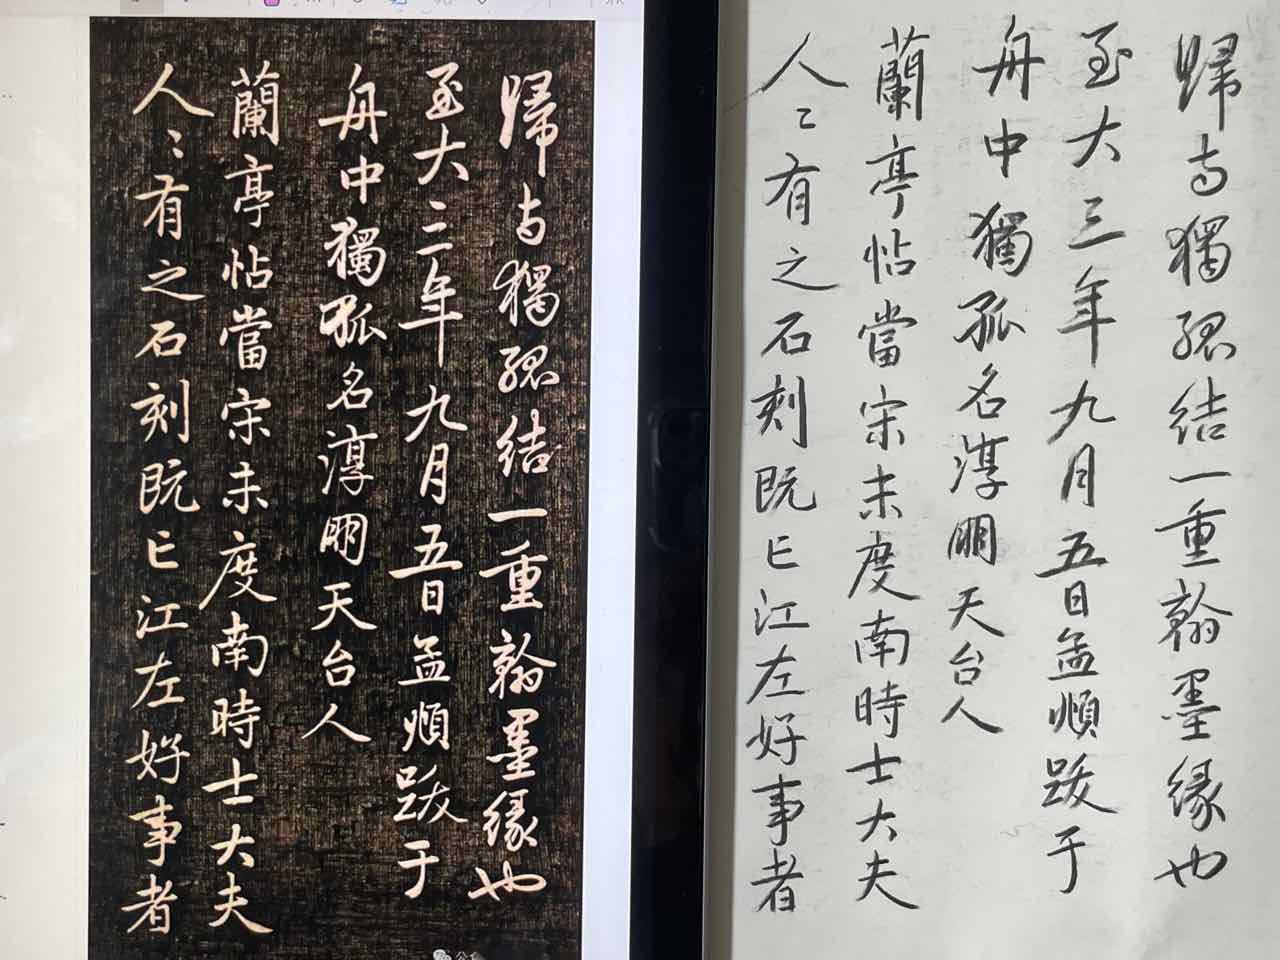 歸与獨孤結一重翰墨緣也
至大三年九月五日孟頫跋于
舟中獨孤名淳朋天台人
蘭亭帖當宋未度南時士大夫
人〻有之石刻既亡江左好事者
歸与獨孤結一重翰墨緣也
至大三年九月五日孟頫跋于
舟中獨孤名淳朋天台人
蘭亭帖當宋未度南時士大夫
人〻有之石刻既亡江左好事者